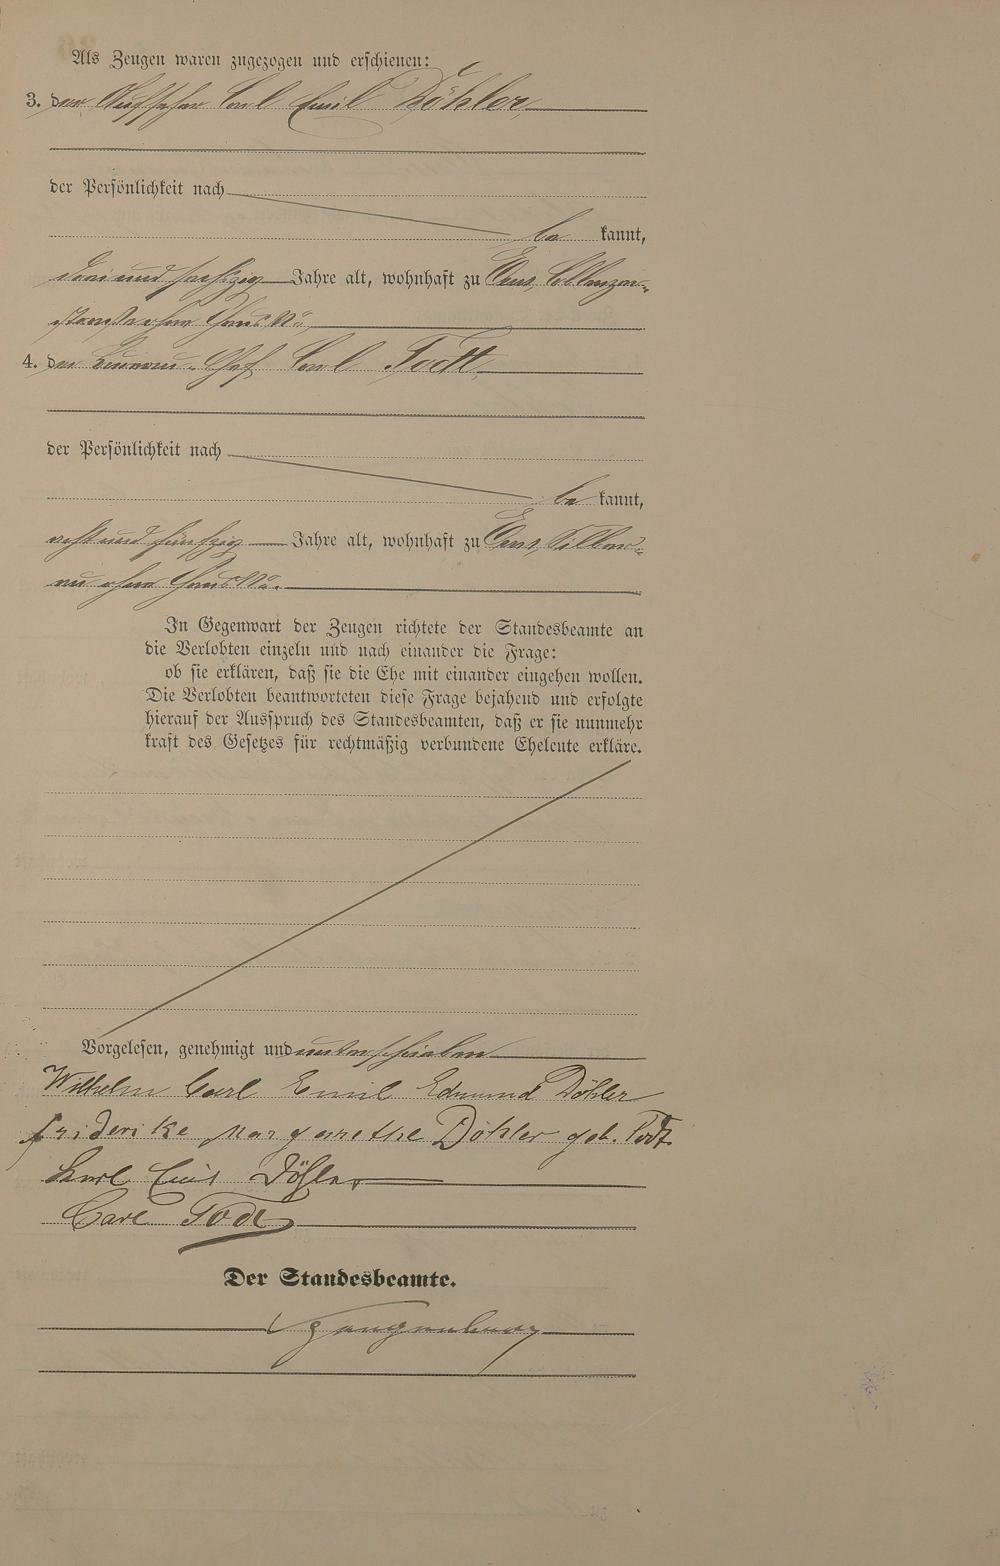 Als Zeugen waren zugezogen und erschienen:
3. der Aufseher Carl Emil Döhler,
der Persönlichkeit nach
be kannt,
drei und sechszig Jahre alt, wohnhaft zu Ems,
straße ohne Haus No.,
4. der Carl Todt,
der Persönlichkeit nach
be kannt,
acht und fünfzig Jahre alt, wohnhaft zu Ems, Silber-
au ohne Haus No.
In Gegenwart der Zeugen richtete der Standesbeamte an
die Verlobten einzeln und nach einander die Frage:
ob sie erklären, daß sie die Ehe mit einander eingehen wollen.
Die Verlobten beantworteten diese Frage bejahend und erfolgte
hierauf der Ausspruch des Standesbeamten, daß er sie nunmehr
kraft des Gesetzes für rechtmäßig verbundene Eheleute erkläre.
Vorgelesen, genehmigt und unterschrieben
Wilhelm Carl Emil Edmund Döhler
Friderike Margarethe Döhler geb. Todt
Karl Emil Döhler
Carl Todt
Der Standesbeamte.